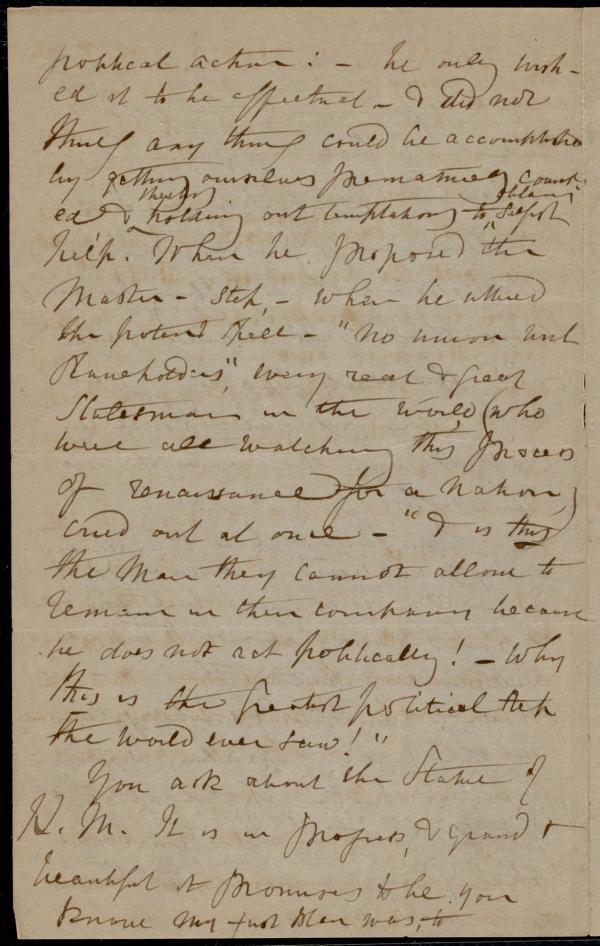 political action: - he only wish-
ed it to be effectual - & did not
think any thing could be accomplished
by getting ourselves prematurely count-
thereby obtain
ed & holding out temptations to selfish
help. When he proposed "the
Master - step, - when he uttered
the potent spell - "No union with
Slaveholders", every real & great
Statesman in the world (who
were all watching this process
of renaissance for a nation)
cried out at once - "& is this
the man they cannot allow to
remain in their company because
he does not act politically! - Why
this is the greatest political step
the world ever saw!"
You ask about the Statue of
H. M. It is in progress, & grand &
beautiful it promises to be. You
know my first plan was, to